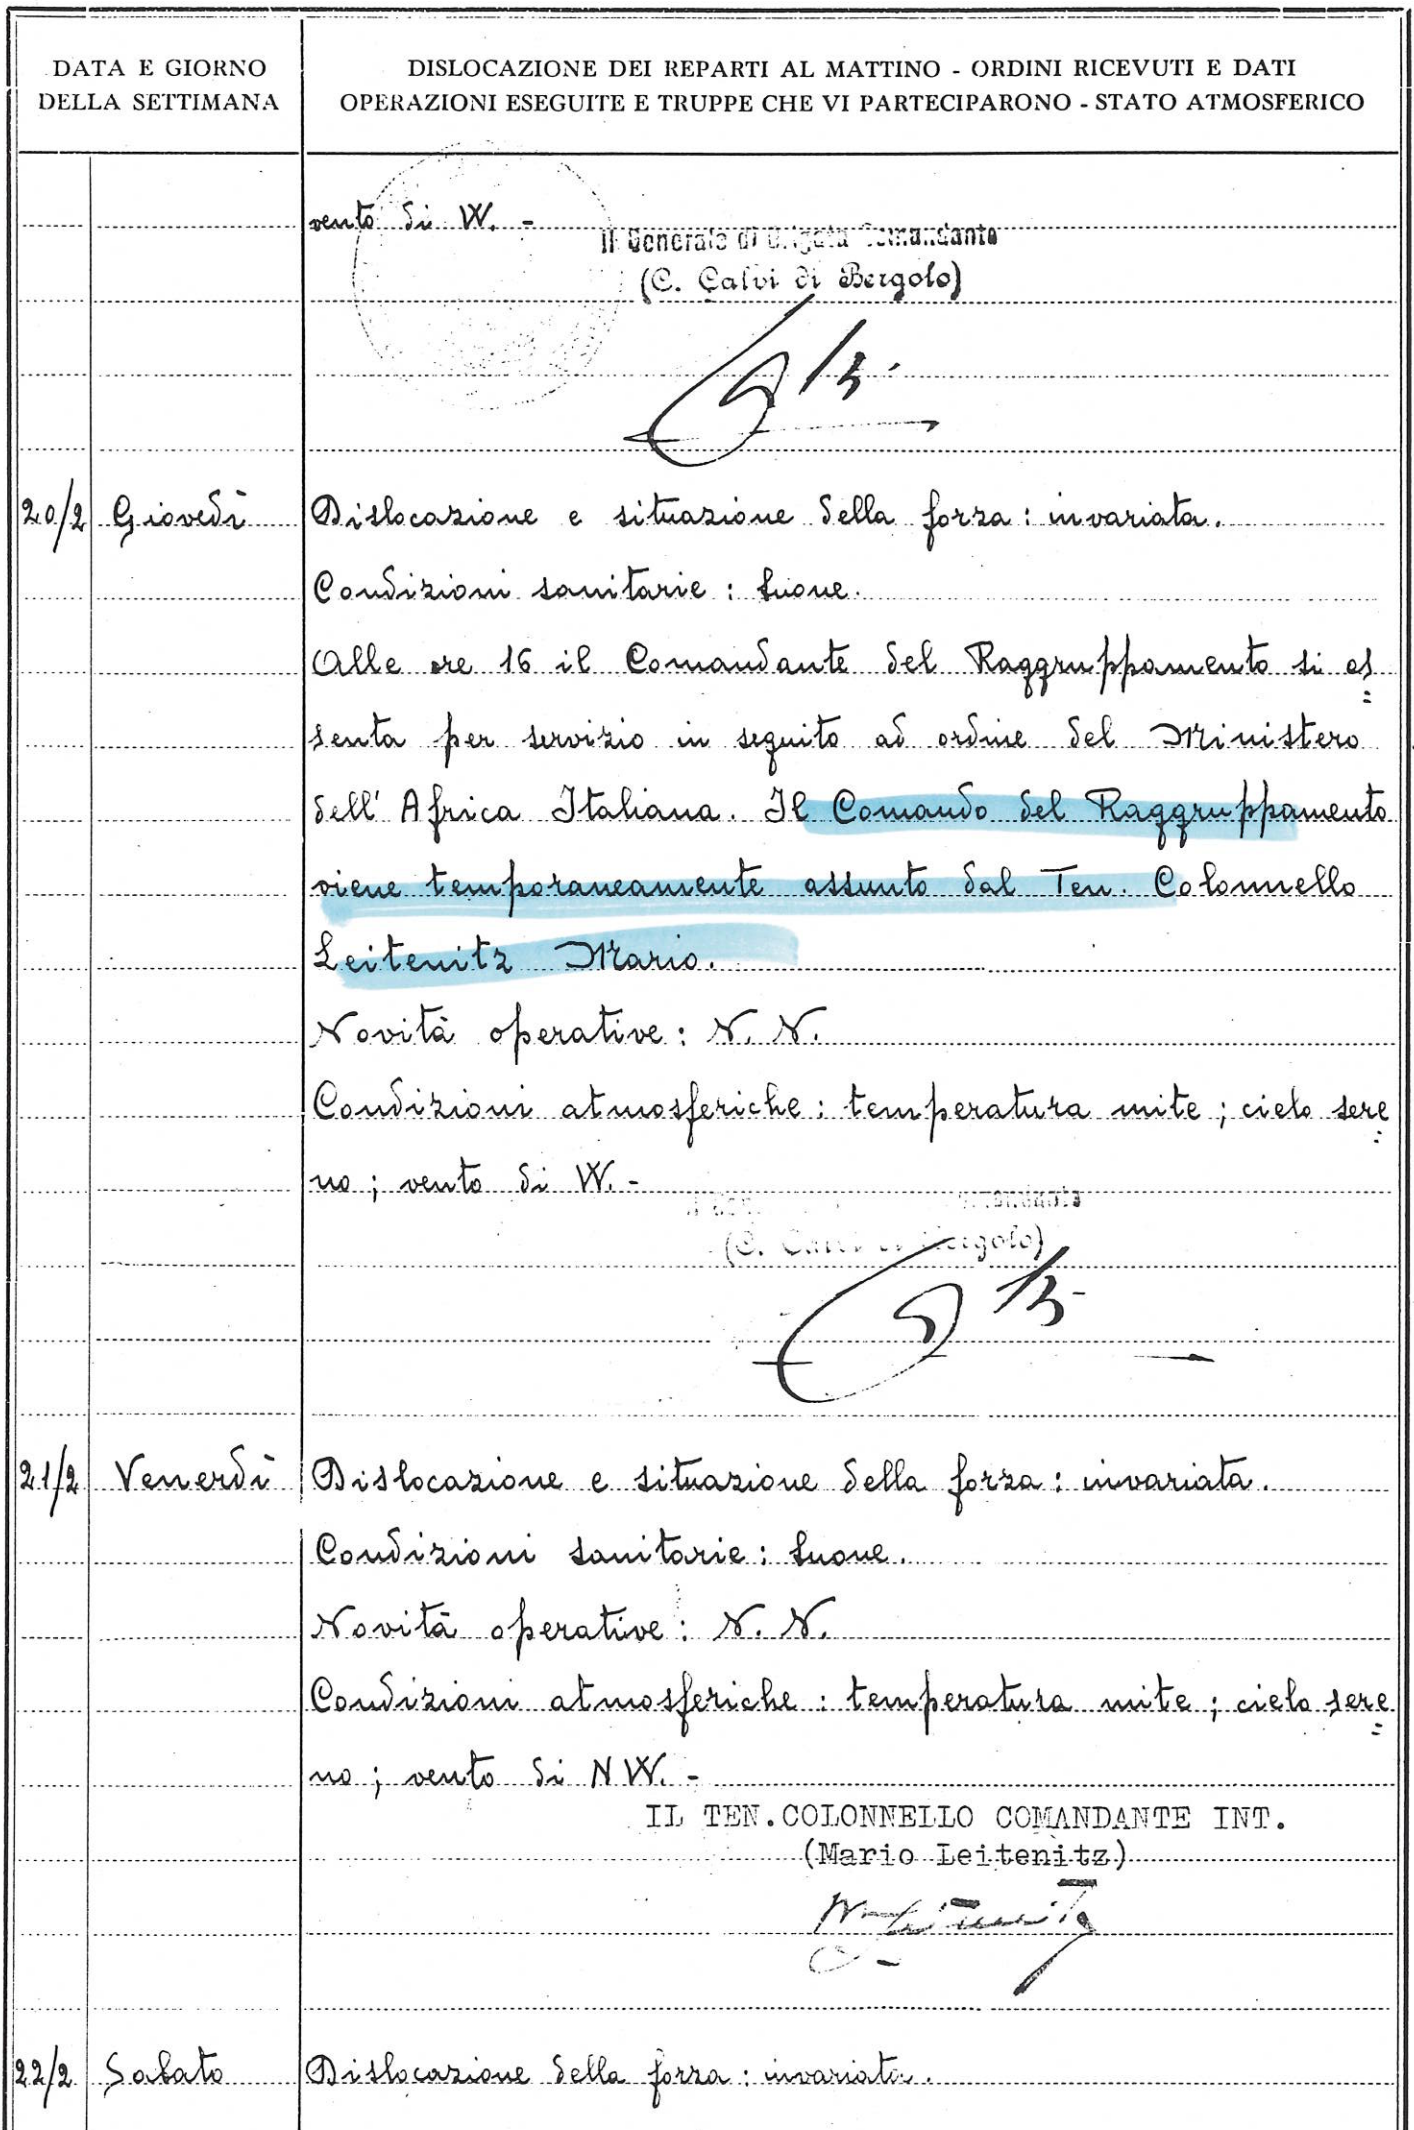 DATA E GIORNO
DELLA SETTIMANA
DISLOCAZIONE DEI REPARTI AL MATTINO - ORDINI RICEVUTI E DATI
OPERAZIONI ESEGUITE E TRUPPE CHE VI PARTECIPARONO - STATO ATMOSFERICO
vento di W. -
Il Generale di Brigata Comandante
(C. Calvi di Bergolo)
20/2 Giovedì Dislocazione e situazione della forza: invariata.
Condizioni sanitarie: buone.
Alle ore 16 il Comandante del Raggruppamento si as=
senta per servizio in seguito ad ordine del Ministero
dell'Africa Italiana. Il Comando del Raggruppamento
viene temporaneamente assunto dal Ten. Colonnello
Leitenitz Mario.
Novità operative: N. N.
Condizioni atmosferiche: temperatura mite; cielo sere=
no; vento di W. -
(C. Calvi di Bergolo)
21/2 Venerdì Dislocazione e situazione della forza: invariata.
Condizioni sanitarie: buone.
Novità operative: N. N.
Condizioni atmosferiche: temperatura mite; cielo sere=
no; vento di NW. -
IL TEN.COLONNELLO COMANDANTE INT.
(Mario Leitenitz)
22/2 Sabato Dislocazione della forza: invariata.